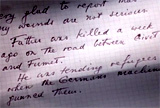 very glad to report that
my wounds are not serious.
Father was killed a week
ago on the road between Givet
and Fumet.
He was tending refugees
when the German machine
gunned them.